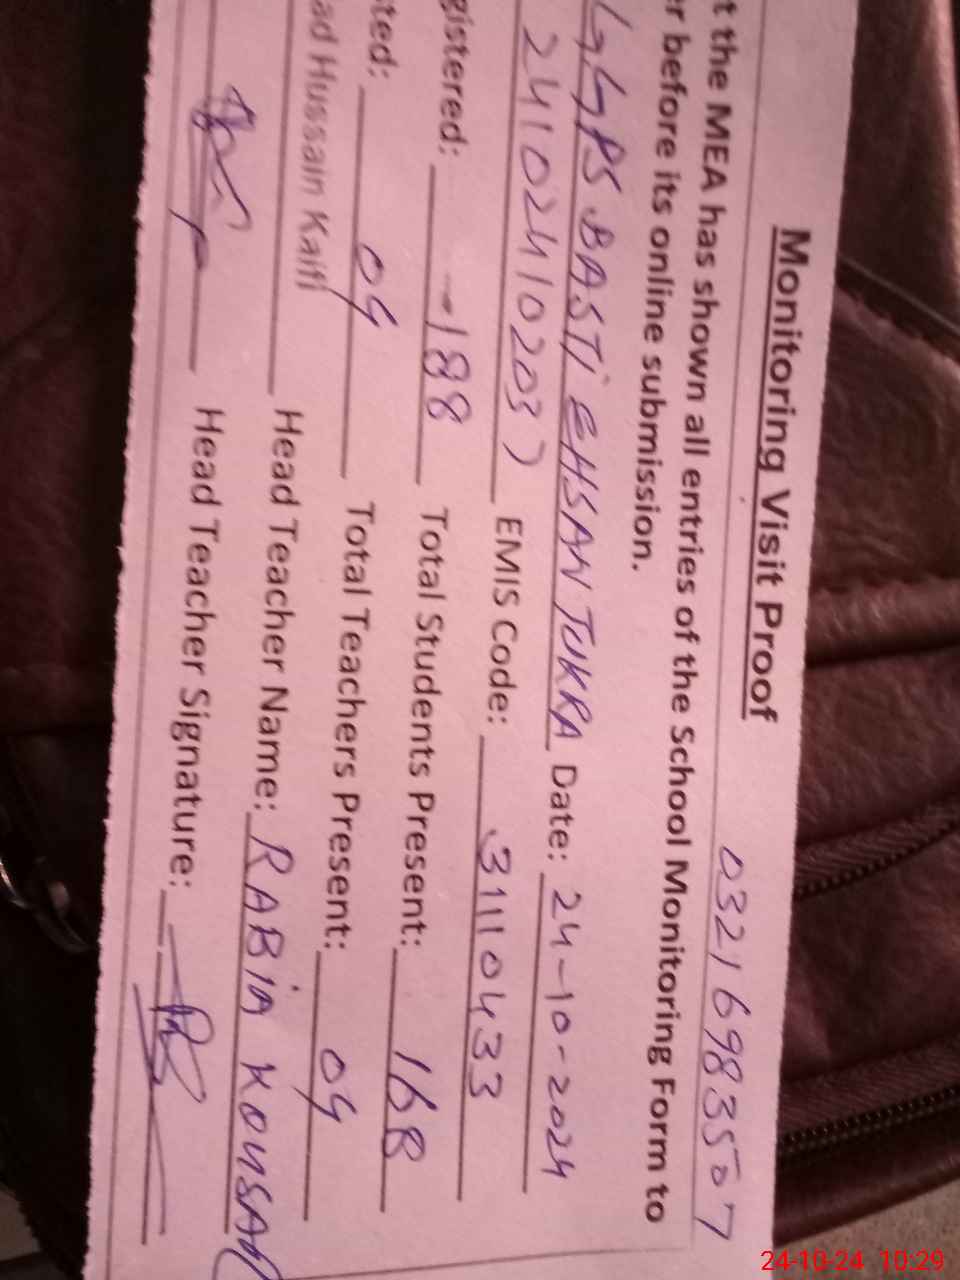 Monitoring Visit Proof
03216983507
t the MEA has shown all entries of the School Monitoring Form to
r before its online submission.
GGPS BASTI EHSAN TUKRA Date: 24-10-2024
24102410203 EMIS Code: 31110433
gistered: -188 Total Students Present: 168
ted: 09 Total Teachers Present: 09
ad Hussain Kaifi Head Teacher Name: RABIA KOUSAR
Head Teacher Signature:
24-10-24 10:29